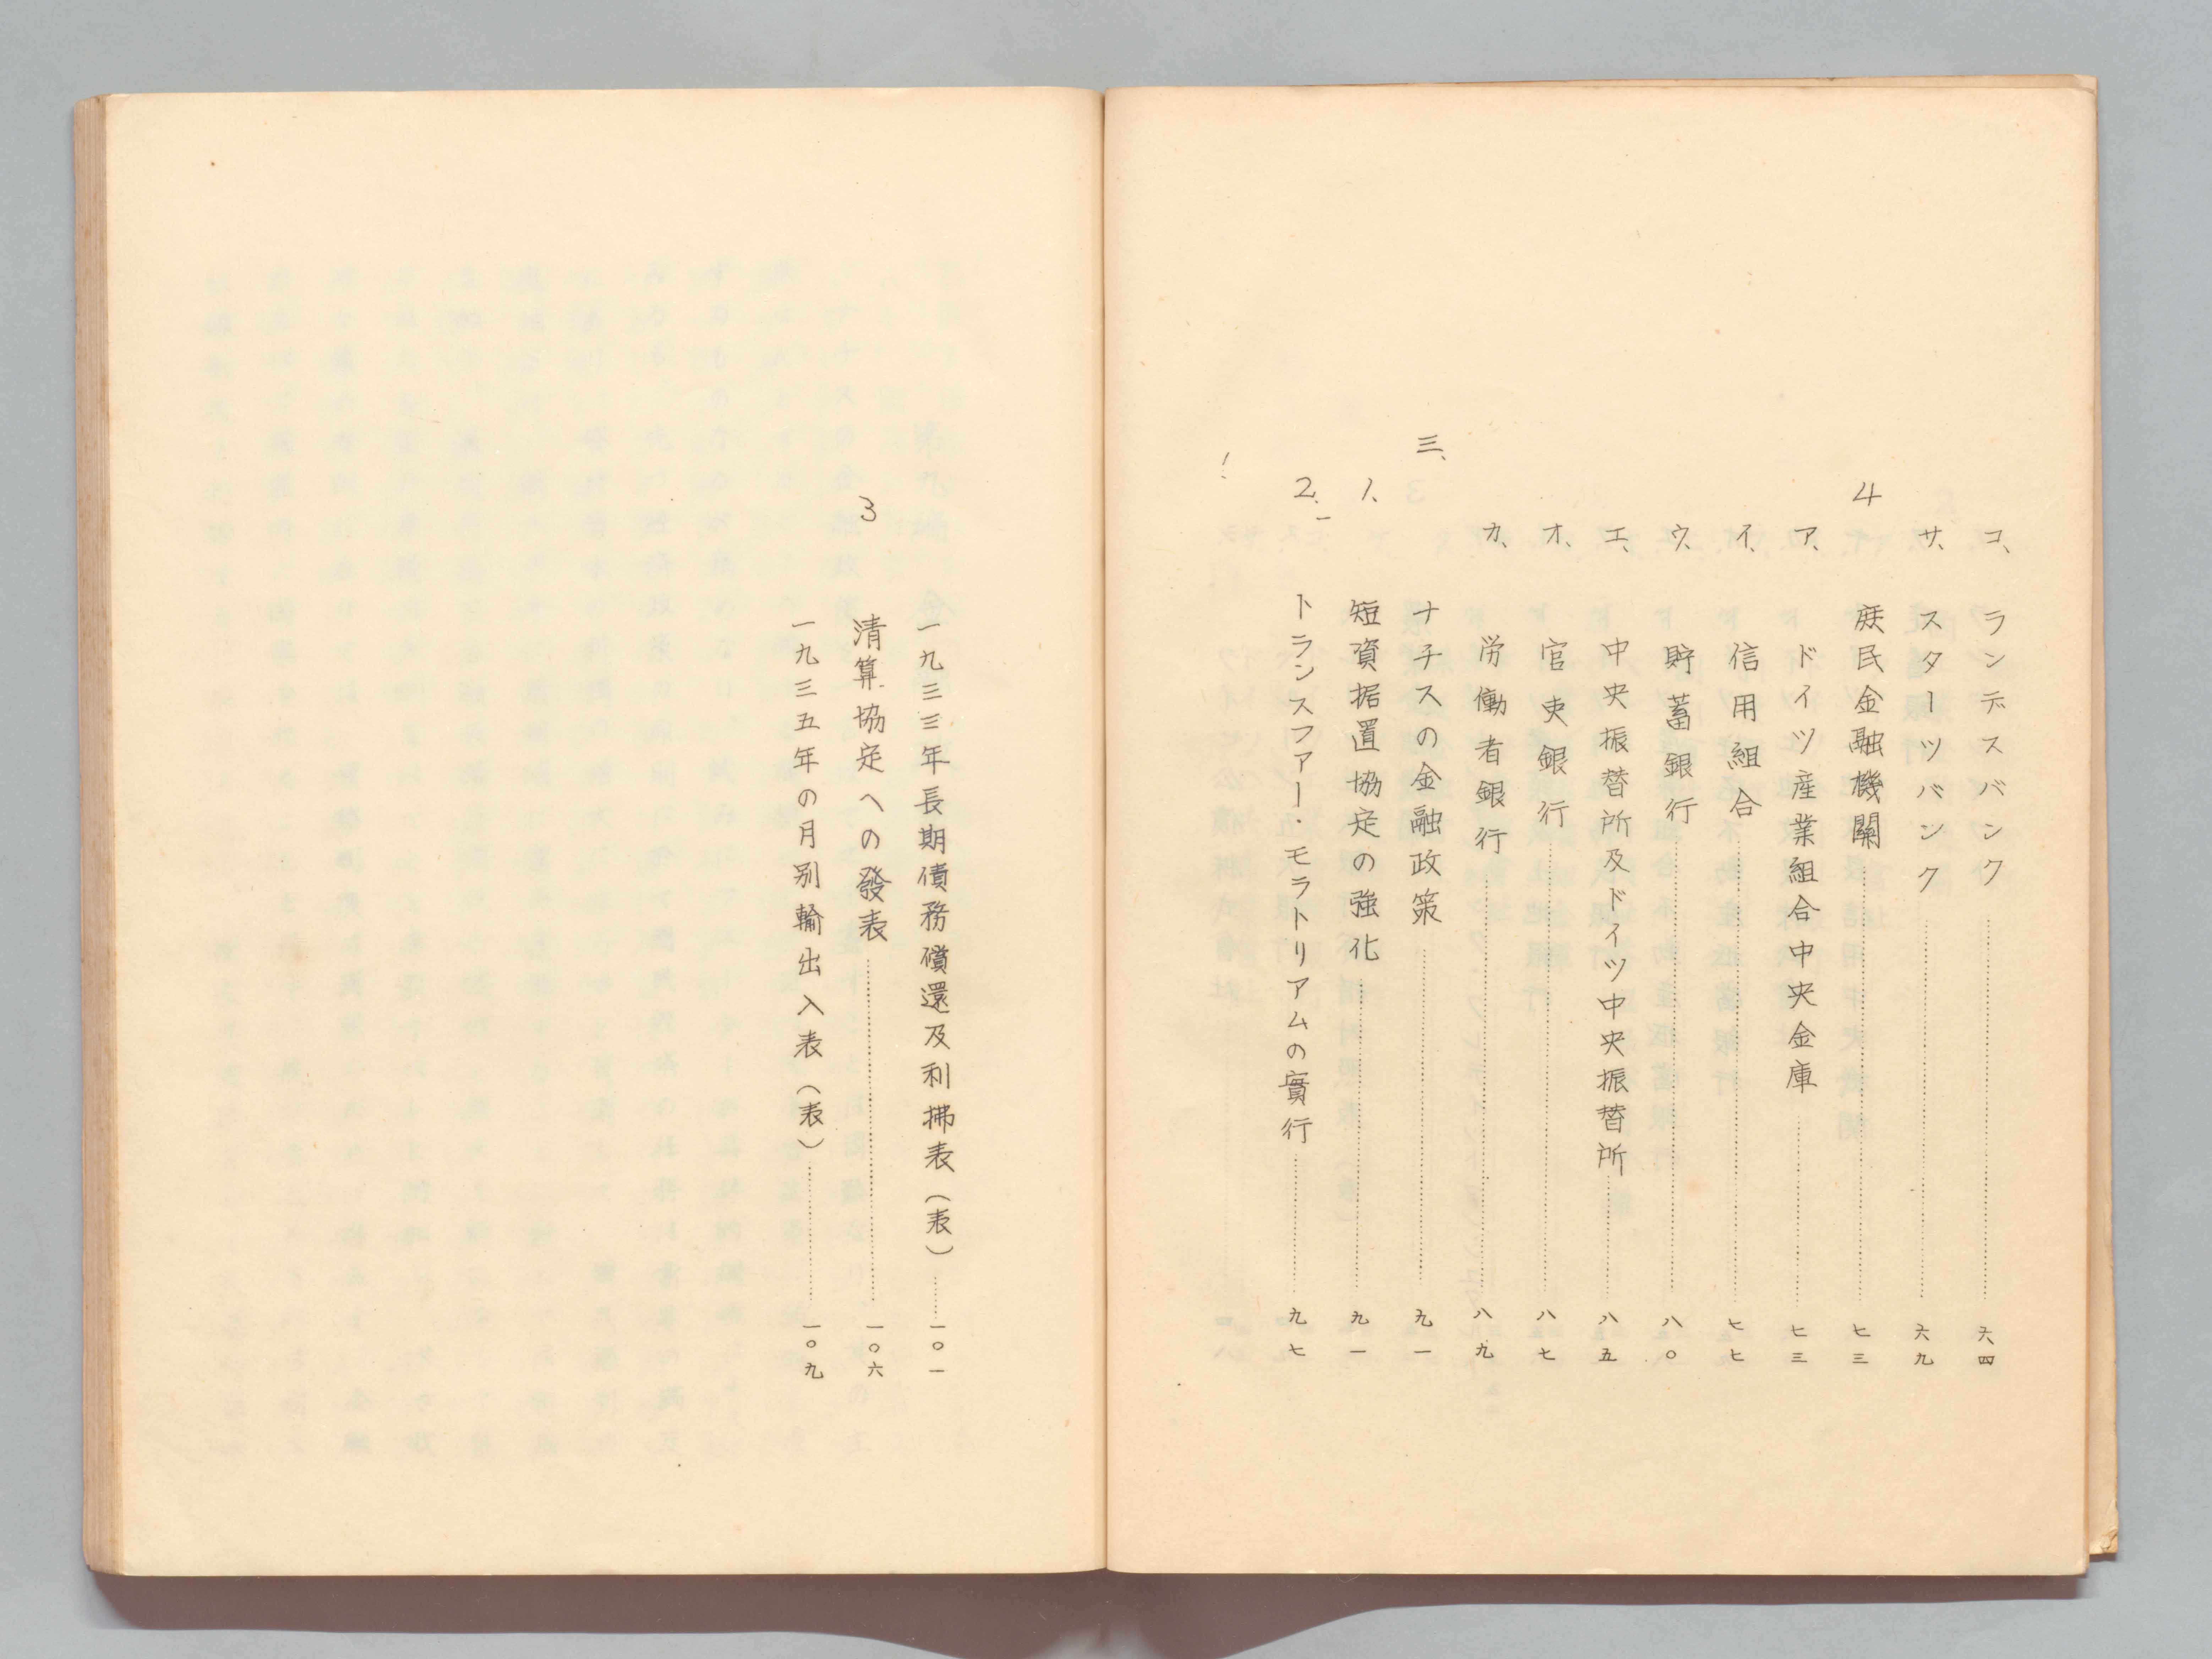 コ、ランデスバンク……六四
サ、スターツバンク……六九
4 庶民金融機關……七三
ア、ドイツ産業組合中央金庫……七三
イ、信用組合……七七
ウ、貯蓄銀行……八〇
エ、中央振替所及ドイツ中央振替所……八五
オ、官吏銀行……八七
カ、労働者銀行……八九
三、ナチスの金融政策……九一
1、短資据置協定の強化……九一
2、トランスファー・モラトリアムの實行……九七
一九三三年長期債務償還及利拂表（表）……一〇一
3 清算協定への發表……一〇六
一九三五年の月別輸出入表（表）……一〇九